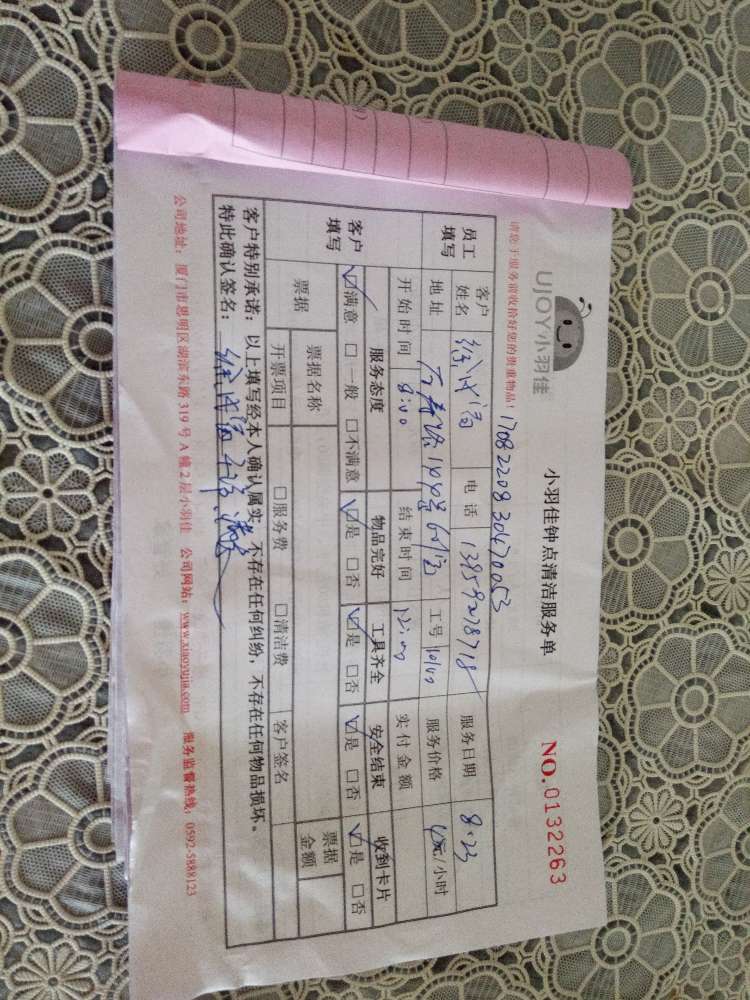 UJOY小羽佳
小羽佳钟点清洁服务单
NO.0132263
请您于服务前收拾好您的贵重物品！
1708220830470053
员工填写 客户姓名 电话 13959278718 服务日期 8.23
地址 工号 服务价格 元/小时
开始时间 8:00 结束时间 12:00 实付金额
客户填写 服务态度 物品完好 工具齐全 安全结束 收到卡片
☑满意 □一般 □不满意 ☑是 □否 ☑是 □否 ☑是 □否 ☑是 □否
票据 票据名称 票据金额
开票项目 □服务费 □清洁费 客户签名
客户特别承诺：以上填写经本人确认属实，不存在任何纠纷，不存在任何物品损坏。
特此确认签名：
公司地址：厦门市思明区湖滨东路319号A幢2层小羽佳 公司网站：www.xiaoyujia.com 服务监督热线：0592-5888123